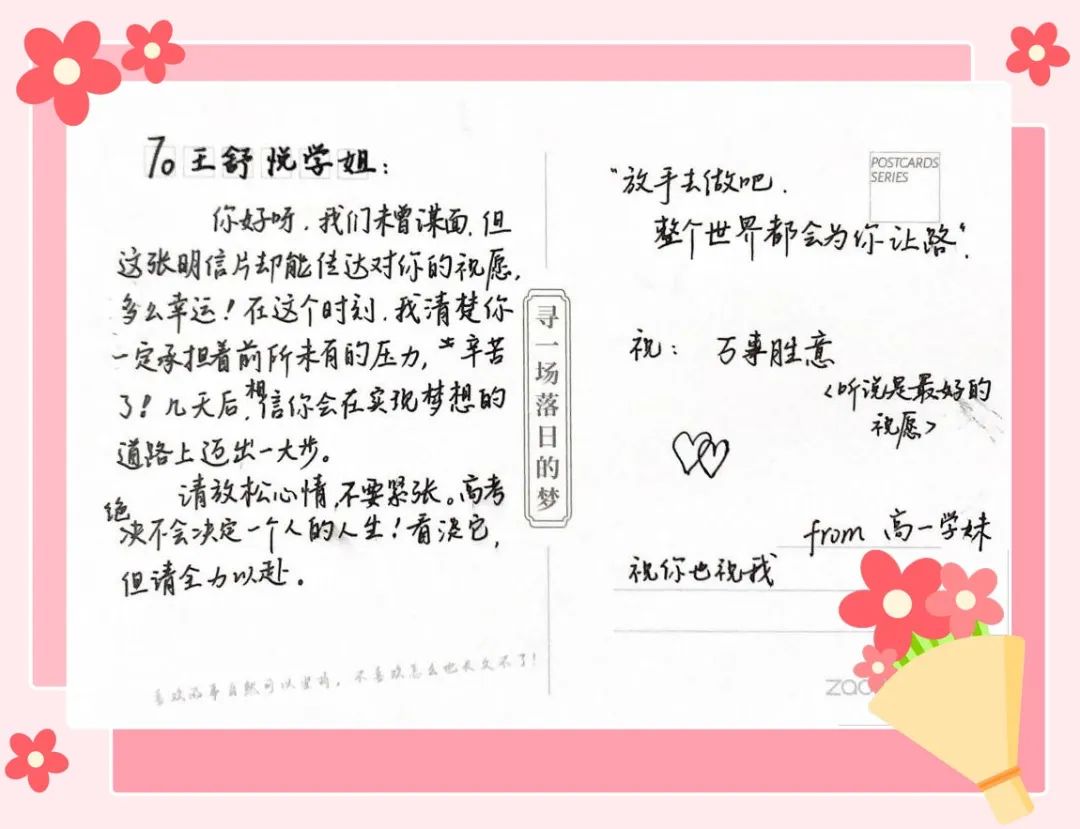 To 王舒悦学姐：
你好呀，我们未曾谋面，但
这张明信片却能传达对你的祝愿，
多么幸运！在这个时刻，我清楚你
一定承担着前所未有的压力，辛苦
了！几天后，想信你会在实现梦想的
道路上迈出一大步。
请放松心情，不要紧张。高考
绝决不会决定一个人的人生！看淡它，
但请全力以赴。
喜欢的事自然可以坚持，不喜欢怎么也长久不了！
寻一场落日的梦
POSTCARDS
SERIES
"放手去做吧，
整个世界都会为你让路"。
祝：万事胜意
<听说是最好的
祝愿>
from 高一学妹
祝你也祝我